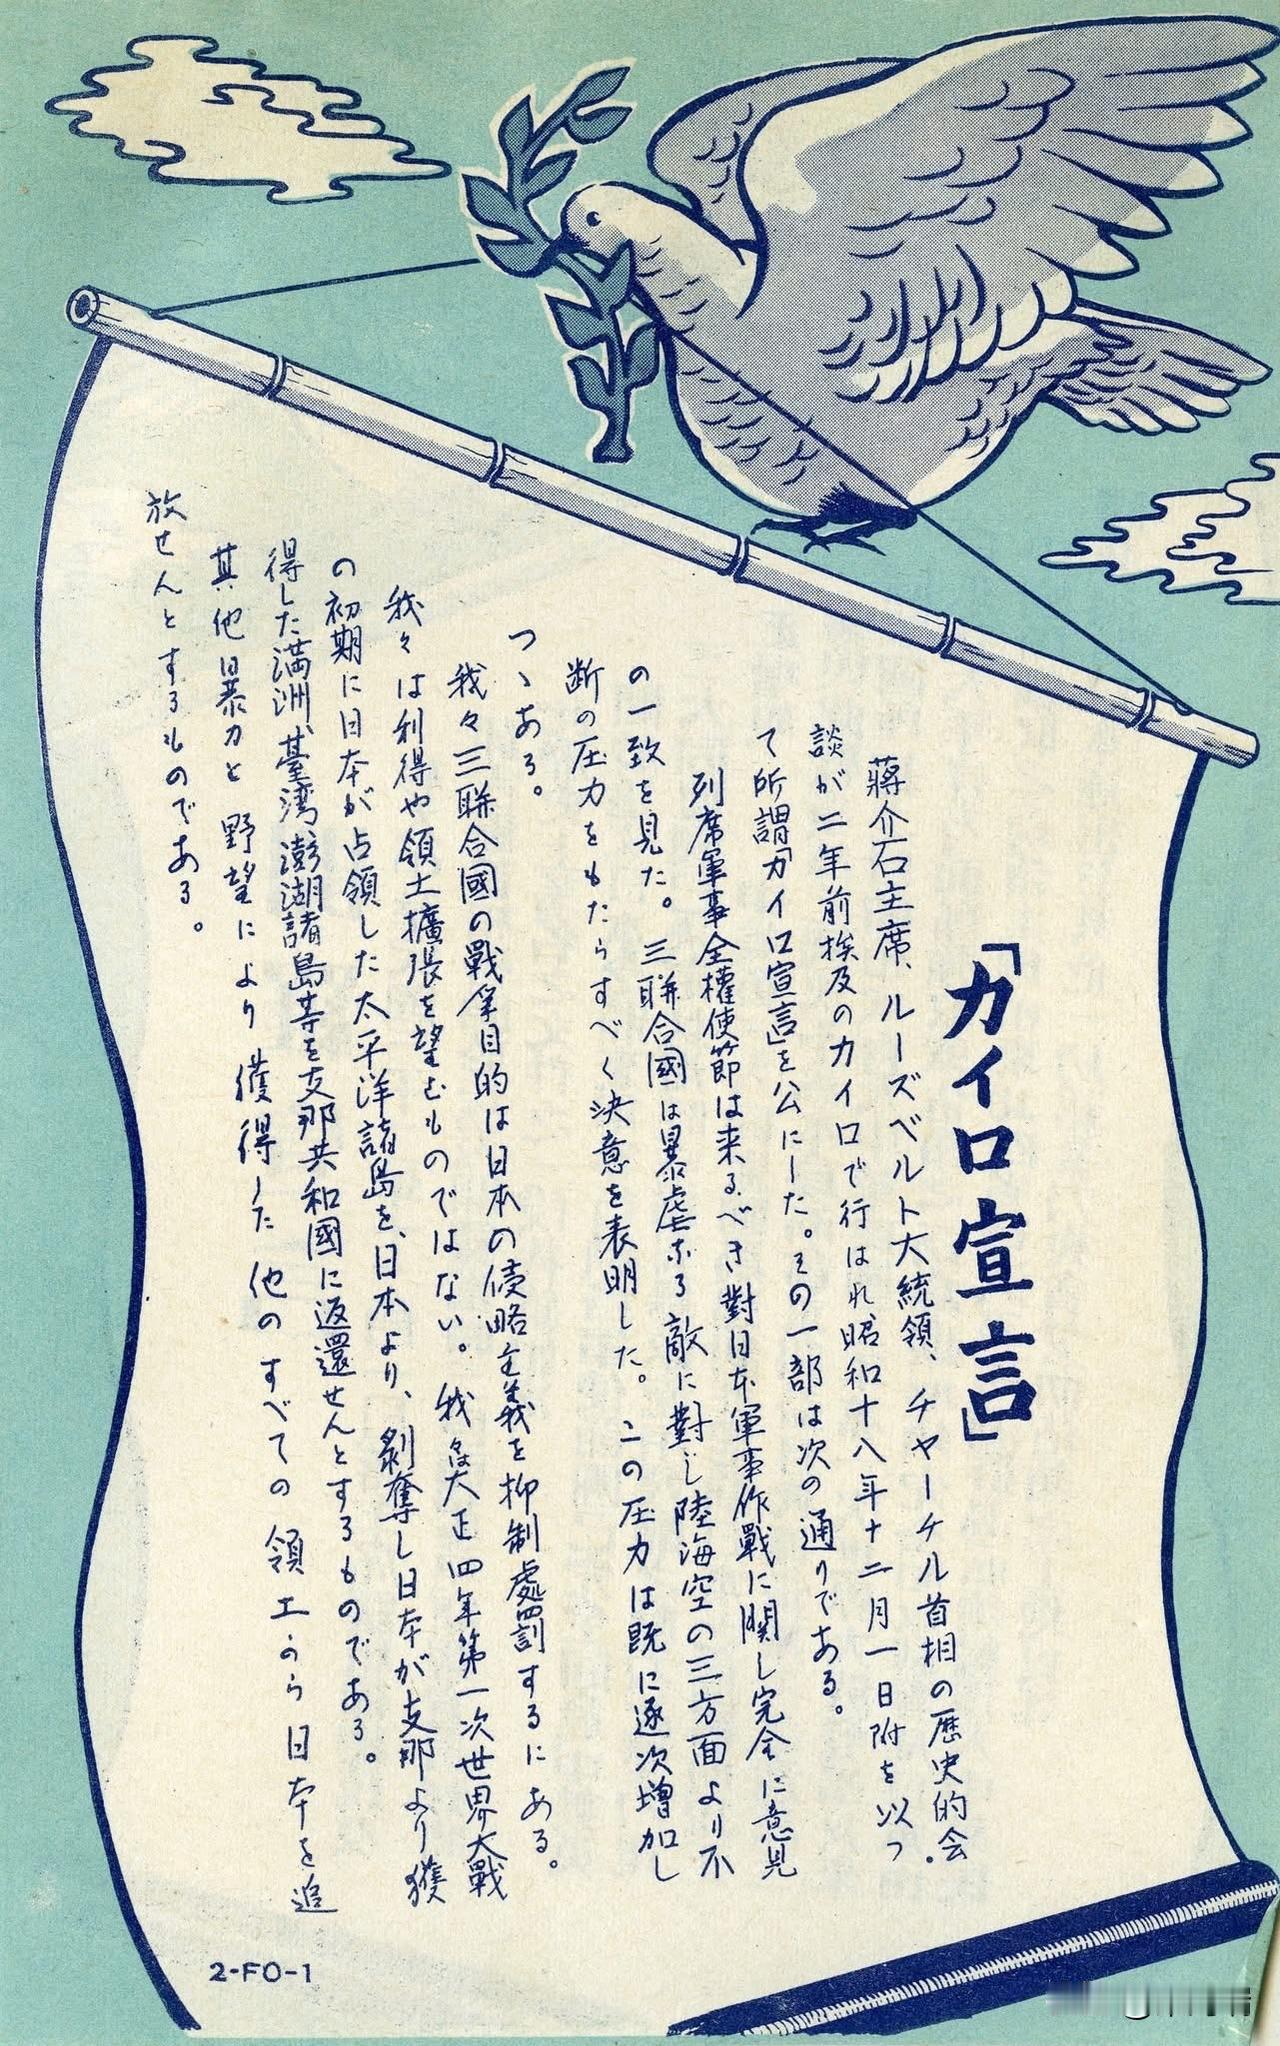 「カイロ宣言」
蔣介石主席、ルーズベルト大統領、チャーチル首相の歴史的会
談が二年前挨及のカイロで行はれ昭和十八年十二月一日附を以つ
て所謂「カイロ宣言」を公にした。その一部は次の通りである。
列席軍事全權使節は来るべき對日本軍事作戰に関し完全に意見
の一致を見た。三聯合國は暴虐なる敵に對し陸海空の三方面より不
断の圧力をもたらすべく決意を表明した。この圧力は既に逐次増加し
つゝある。
我々三聯合國の戰争目的は日本の侵略主義を抑制處罰するにある。
我々は利得や領土擴張を望むものではない。我々は大正四年第一次世界大戰
の初期に日本が占領した太平洋諸島を、日本より、剝奪し日本が支那より獲
得した満洲、臺湾、澎湖諸島等を支那共和國に返還せんとするものである。
其他暴力と野望により獲得した他のすべての領土から日本を追
放せんとするものである。
2-FO-1